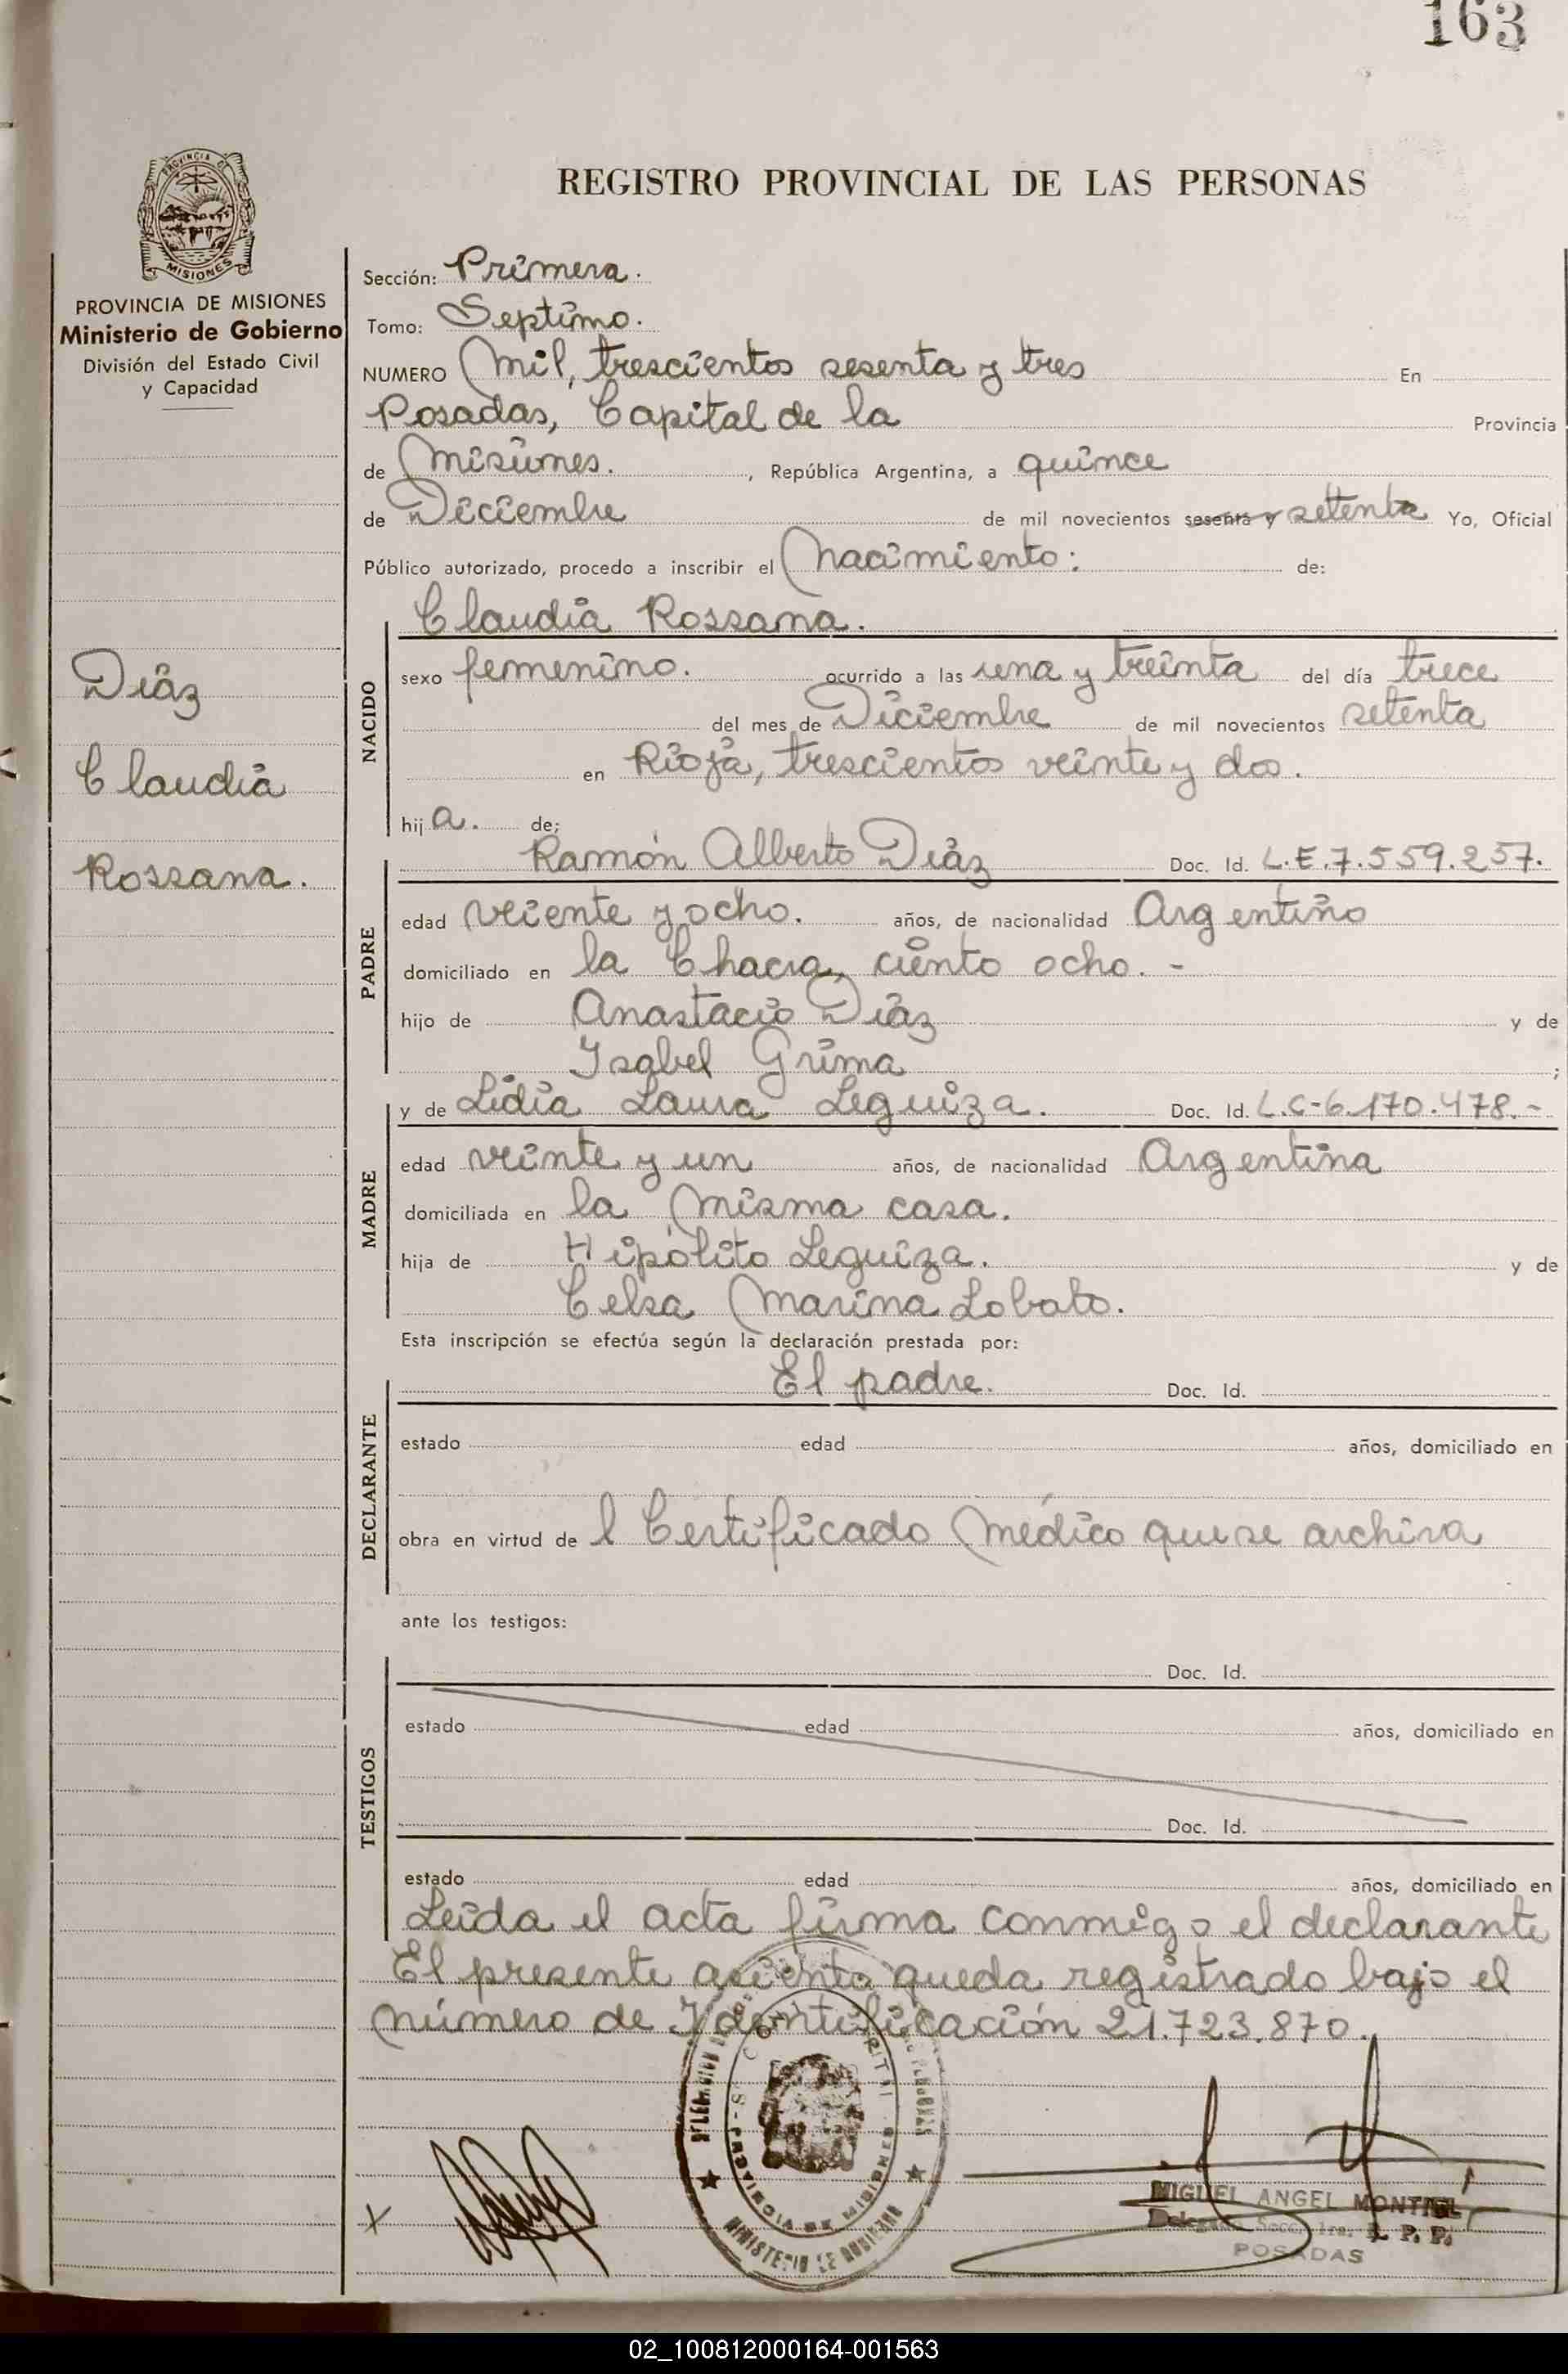 163
REGISTRO PROVINCIAL DE LAS PERSONAS
PROVINCIA DE
MISIONES
PROVINCIA DE MISIONES
Ministerio de Gobierno
División del Estado Civil
y Capacidad
Díaz
Claudia
Rossana.
Sección: Primera.
Tomo: Septimo.
NUMERO Mil, trescientos sesenta y tres En
Posadas, Capital de la Provincia
de Misiones. , República Argentina, a quince
de Diciembre de mil novecientos sesenta y setenta Yo, Oficial
Público autorizado, procedo a inscribir el Nacimiento: de:
Claudia Rossana.
NACIDO
sexo femenino. ocurrido a las una y treinta del día trece
del mes de Diciembre de mil novecientos setenta
en Rioja, trescientos veinte y dos.
hij a. de:
PADRE
Ramón Alberto Díaz Doc. Id. L.E.7.559.257.
edad veiente y ocho. años, de nacionalidad Argentino
domiciliado en la Chacra, ciento ocho. -
hijo de Anastacio Díaz y de
Isabel Grima ;
MADRE
y de Lidia Laura Leguiza. Doc. Id. L.C-6.170.478.-
edad veinte y un años, de nacionalidad Argentina
domiciliada en la misma casa.
hija de Hipólito Leguiza. y de
Celsa Marina Lobato.
Esta inscripción se efectúa según la declaración prestada por:
DECLARANTE
El padre. Doc. Id.
estado edad años, domiciliado en
obra en virtud de l Certificado Médico que se archiva
ante los testigos:
TESTIGOS
Doc. Id.
estado edad años, domiciliado en
Doc. Id.
estado edad años, domiciliado en
Leida el acta firma conmigo el declarante
El presente asiento queda registrado bajo el
número de Identificación 21.723.870.
PROVINCIA DE MISIONES
MINISTERIO DE GOBIERNO
MIGUEL ANGEL MONTIEL
Delegado Secc. 1ra. R. P. P.
POSADAS
02_100812000164-001563